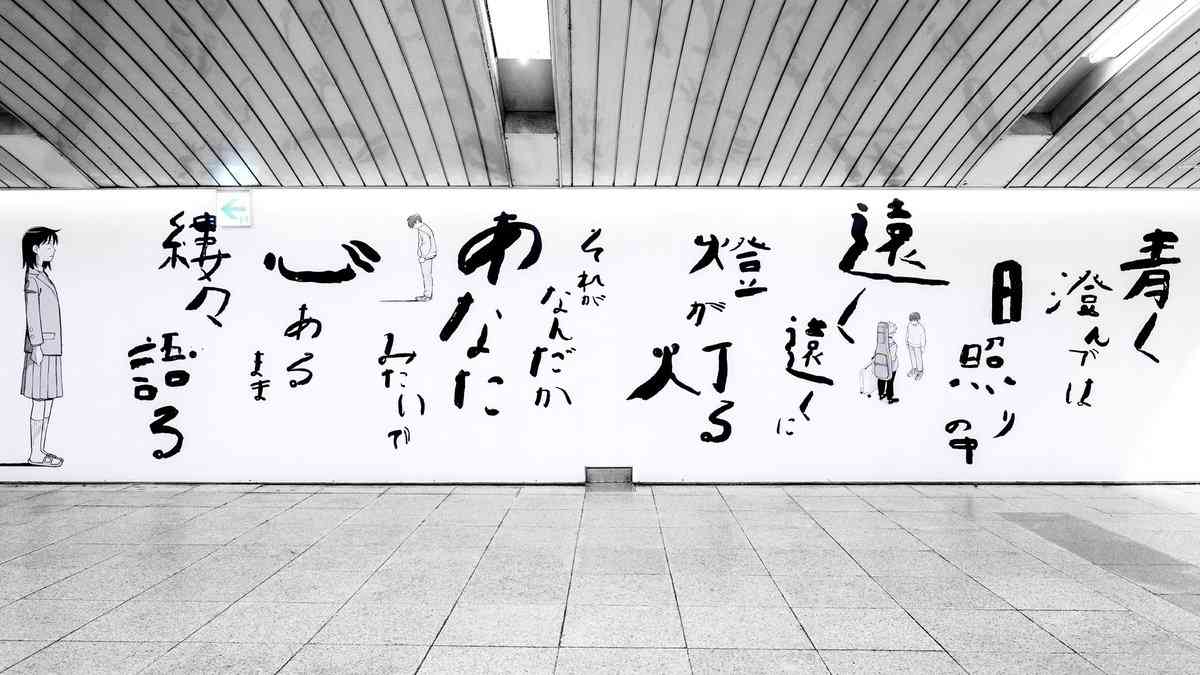 青く
澄んでは
日照りの中
遠く
遠くに
燈が
灯る
それが
なんだか
あなた
みたいで
心
ある
まま
縷々
語る